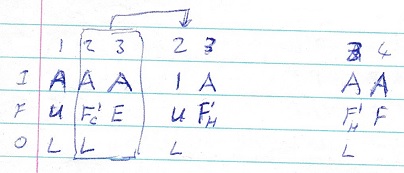 1 2 3 2 3 3 4
I A A A I A A A
F U F'c E U F'H F'H F
O L L L L